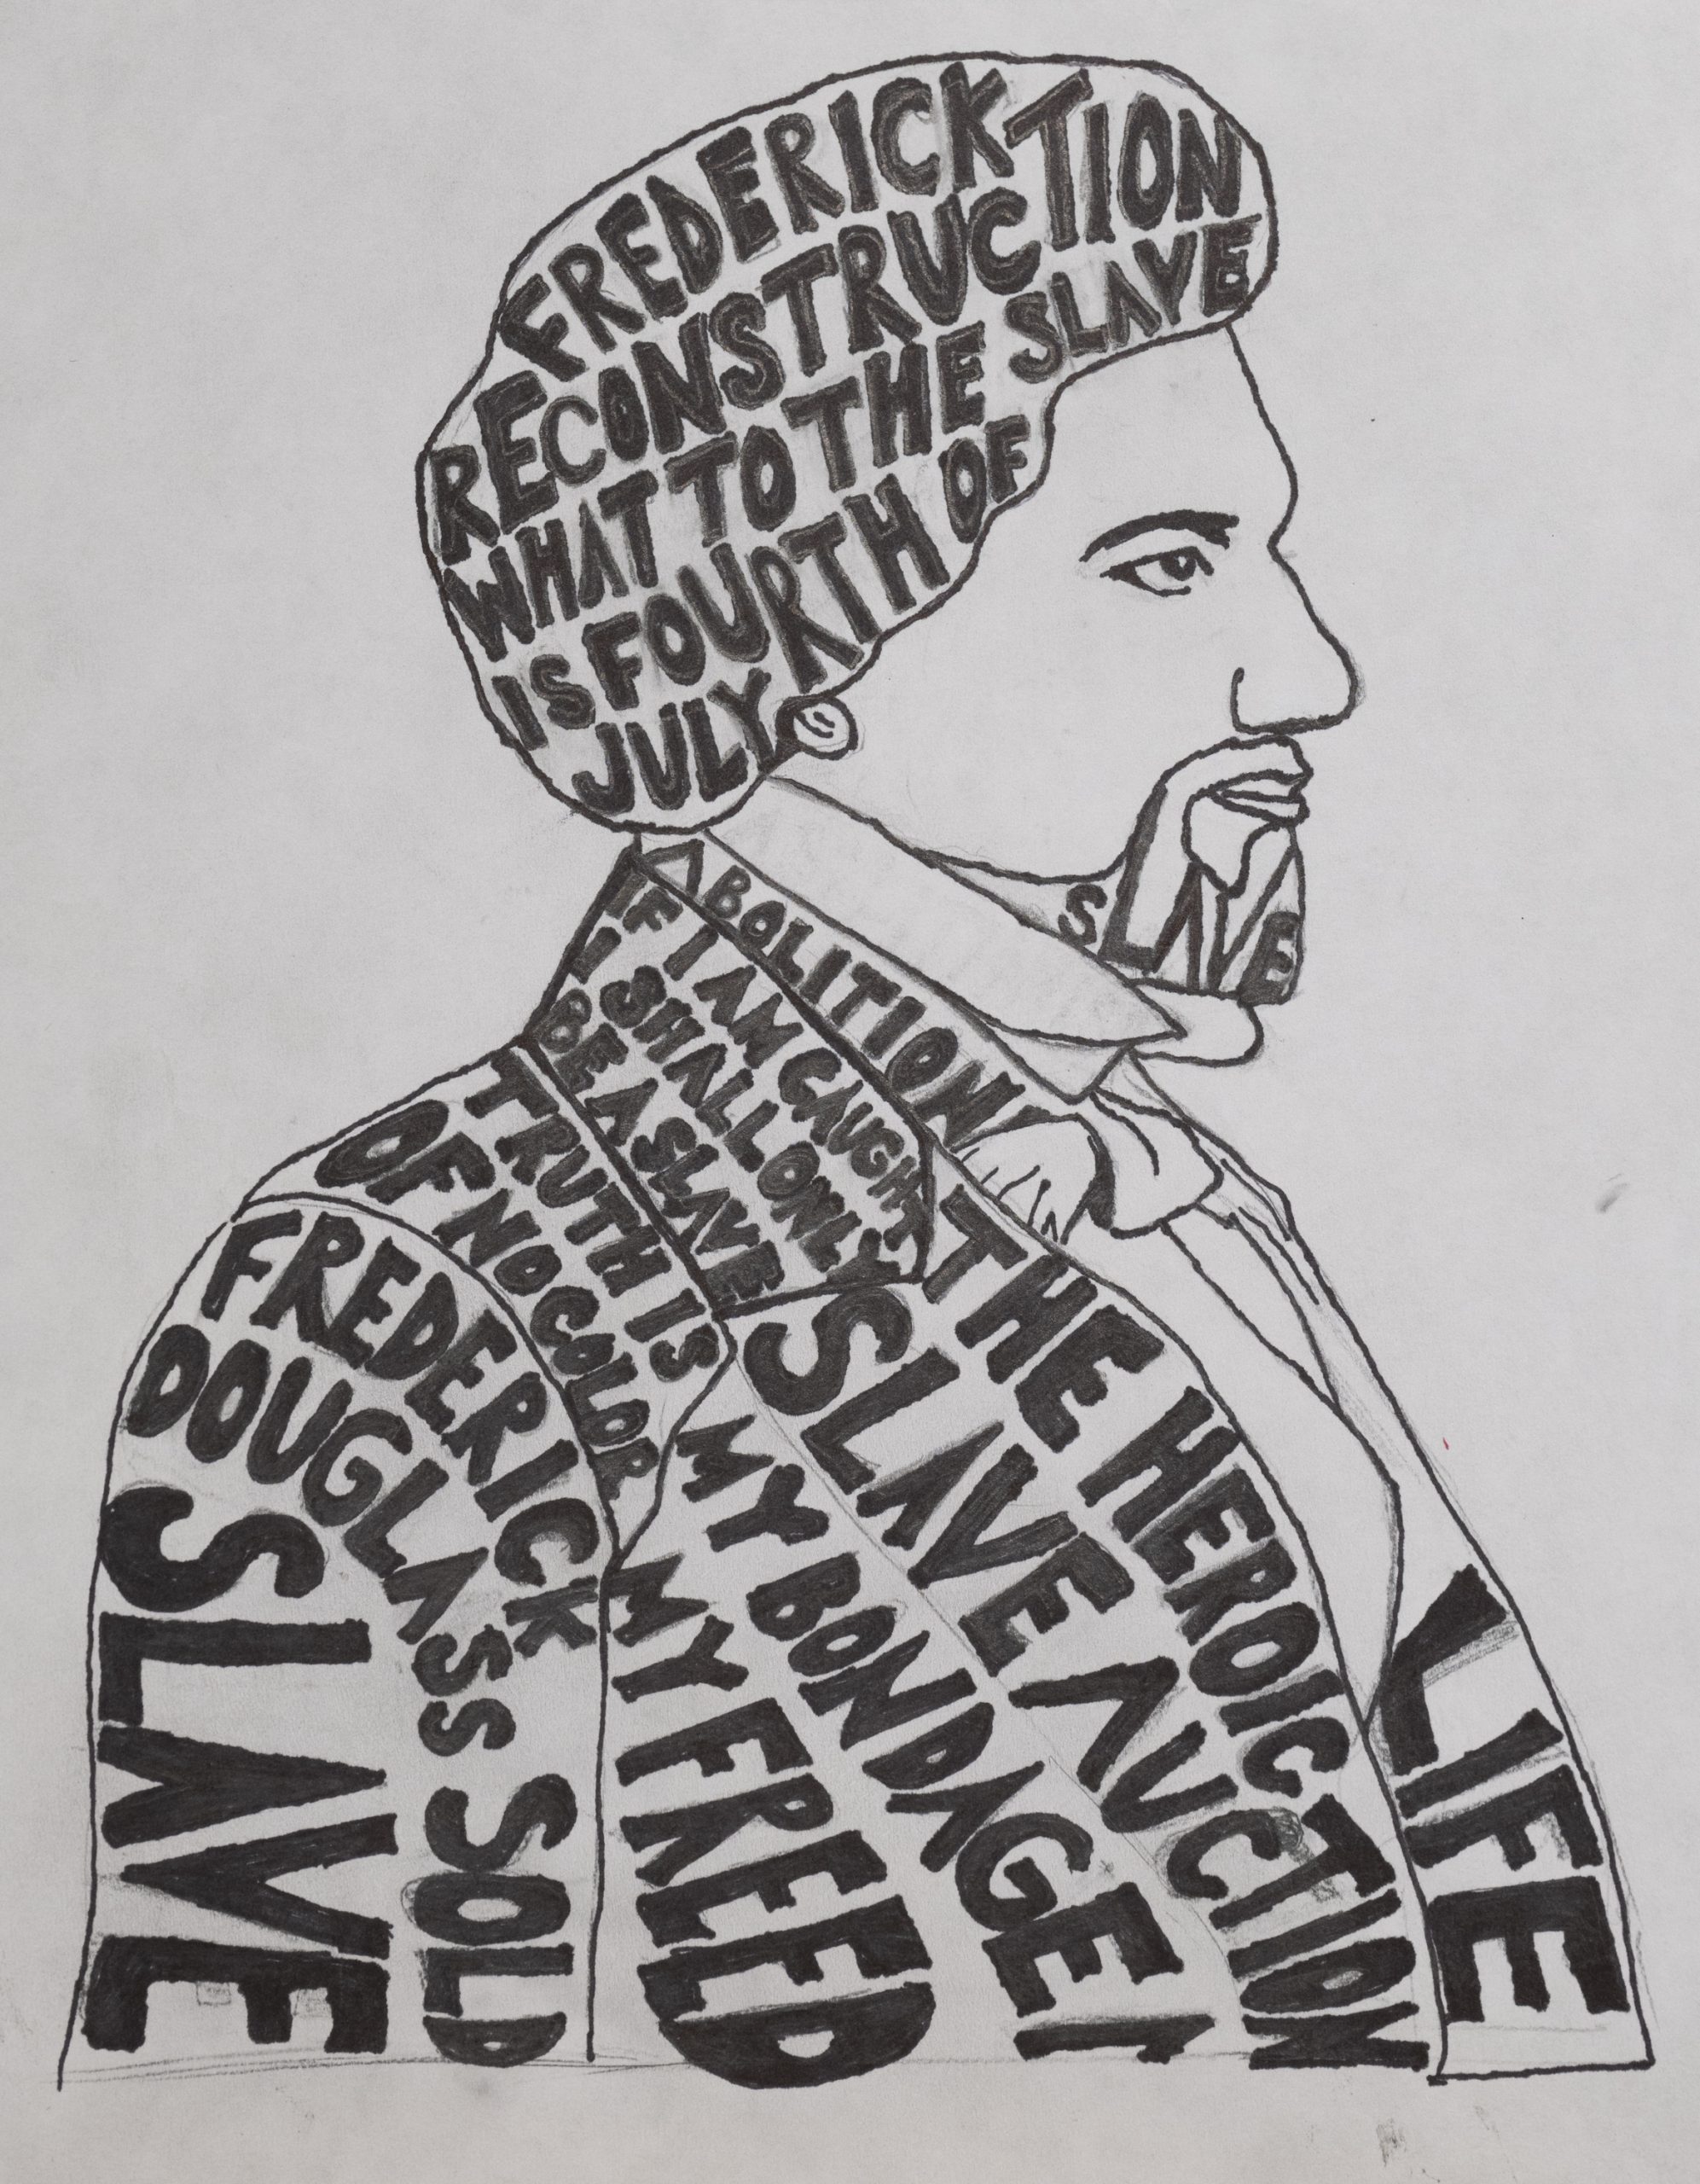 FREDERICK
RECONSTRUCTION
WHAT TO THE SLAVE
IS FOURTH OF
JULY
SLAVE
ABOLITION
IF I AM CAUGHT
I SHALL ONLY
BE A SLAVE
TRUTH IS
OF NO COLOR
FREDERICK
DOUGLASS SOLD
SLAVE
MY FREED
MY BONDAGE
SLAVE AUCTION
THE HEROIC
LIFE